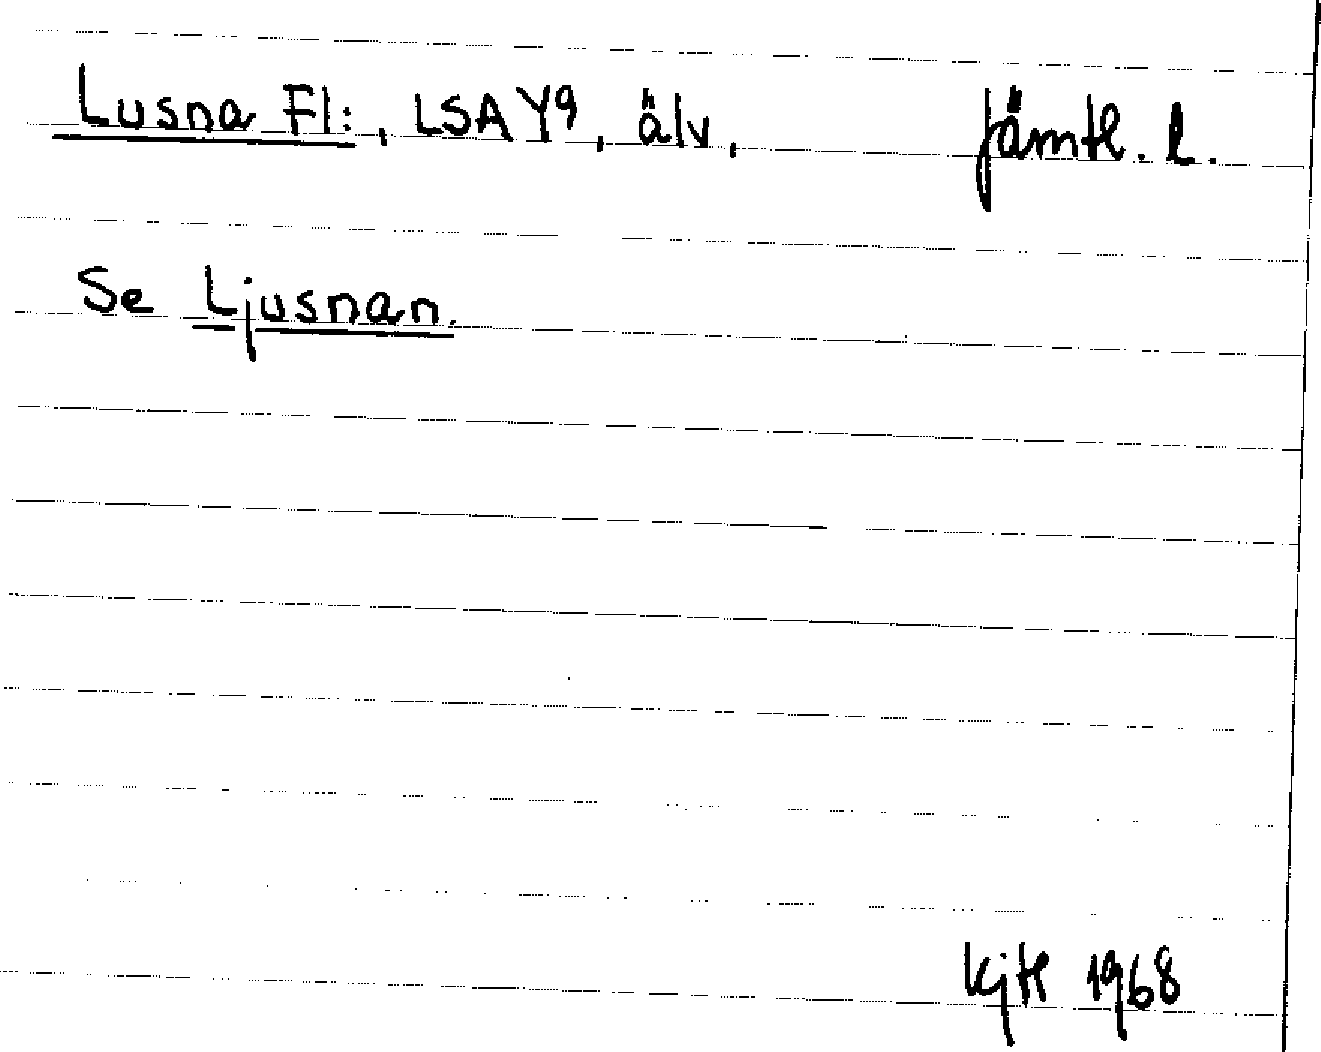 Lusna Fl:, LSA Y9, älv, Jämtl. l.
Se Ljusnan.
1968